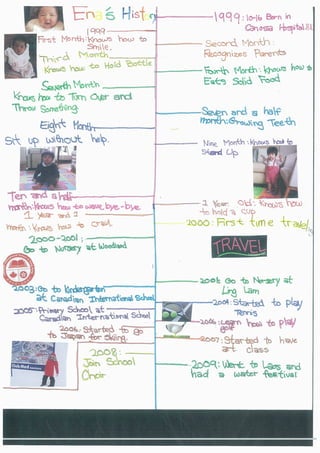 Eng's History
1999
First Month: Knows how to
Smile.
Third Month
Knows how to Hold Bottle
Seventh Month
Knows how to Turn Over and
Throw Something.
Eight Month
Sit up without help.
Ten and a half
month: Knows how to wave bye-bye.
1 Year and 1
month: Knows how to crawl.
2000-2001:
Go to Nursery at Woodland
2003: Go to Kindergarten
at Canadian International School
2005: Primary School at
Canadian International School
2006: Started to go
to Japan for Skiing.
2008:
Join School
Choir
1999: 10-16 Born in
Canossa Hospital
Second Month:
Recognizes Parents
Fourth Month: Knows how to
Eats Solid Food
Seven and a half
month: Growing Teeth
Nine Month: Knows how to
Stand Up
1 Year Old: Knows how
to hold a cup
2000: First time travel
TRAVEL
2001: Go to Nursery at
Ling Lam
Started to play
Tennis
Learn how to play
golf
2007: Started to have
art class
2009: Went to Laos and
had a water festival